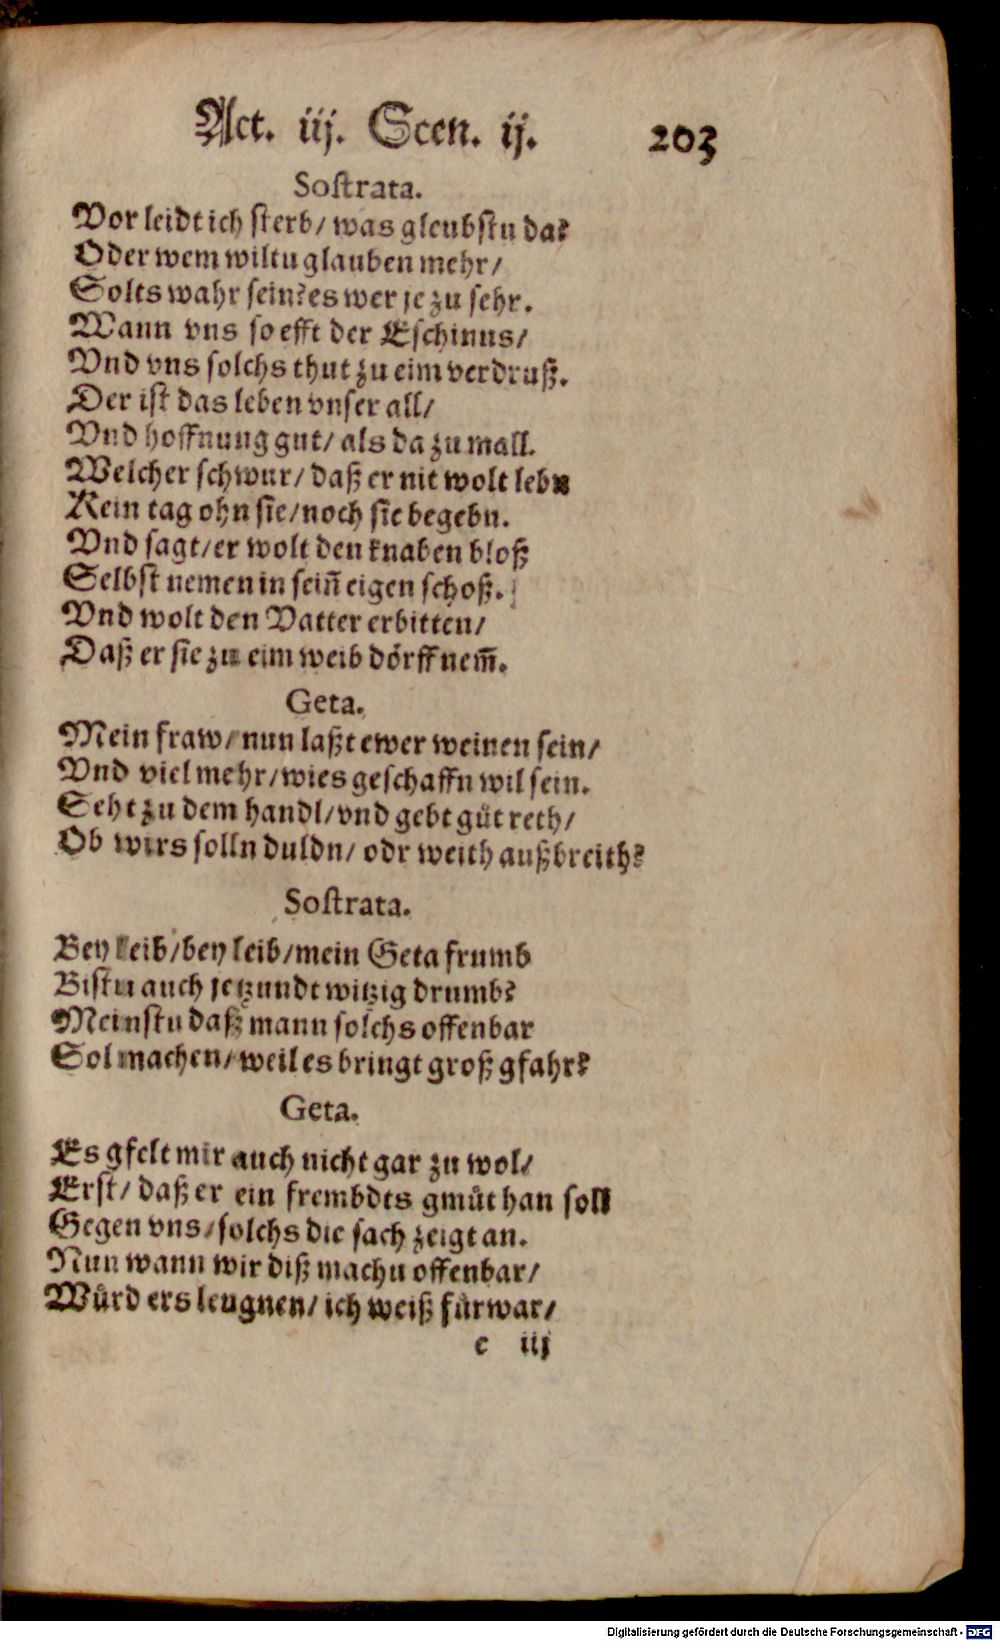 Act. iij. Scen. ij. 203
Soſtrata.
Vor leidt ich ſterb/ was gleubſtu da?
Oder wem wiltu glauben mehr/
Solts wahr ſein? es wer je zu ſehr.
Wann vns ſo efft der Eſchinus/
Vnd vns ſolchs thut zu eim verdruß.
Der iſt das leben vnſer all/
Vnd hoffnung gut/ als da zu mall.
Welcher ſchwur/ daß er nit wolt lebn
Kein tag ohn ſie/ noch ſie begebn.
Vnd ſagt/ er wolt den knaben bloß
Selbſt nemen in ſein̄ eigen ſchoß.
Vnd wolt den Vatter erbitten/
Daß er ſie zu eim weib doͤrff nem̄.
Geta.
Mein fraw/ nun laßt ewer weinen ſein/
Vnd viel mehr/ wies geſchaffn wil ſein.
Seht zu dem handl/ vnd gebt guͤt reth/
Ob wirs ſolln duldn/ odr weith außbreith?
Soſtrata.
Bey leib/ bey leib/ mein Geta frumb
Biſtu auch jetzundt witzig drumb?
Meinſtu daß mann ſolchs offenbar
Sol machen/ weil es bringt groß gfahr?
Geta.
Es gfelt mir auch nicht gar zu wol/
Erſt/ daß er ein frembdts gmuͤt han ſoll
Gegen vns/ ſolchs die ſach zeigt an.
Nun wann wir diß machn offenbar/
Wuͤrd ers leugnen/ ich weiß fuͤrwar/
c iij
Digitalisierung gefördert durch die Deutsche Forschungsgemeinschaft - DFG